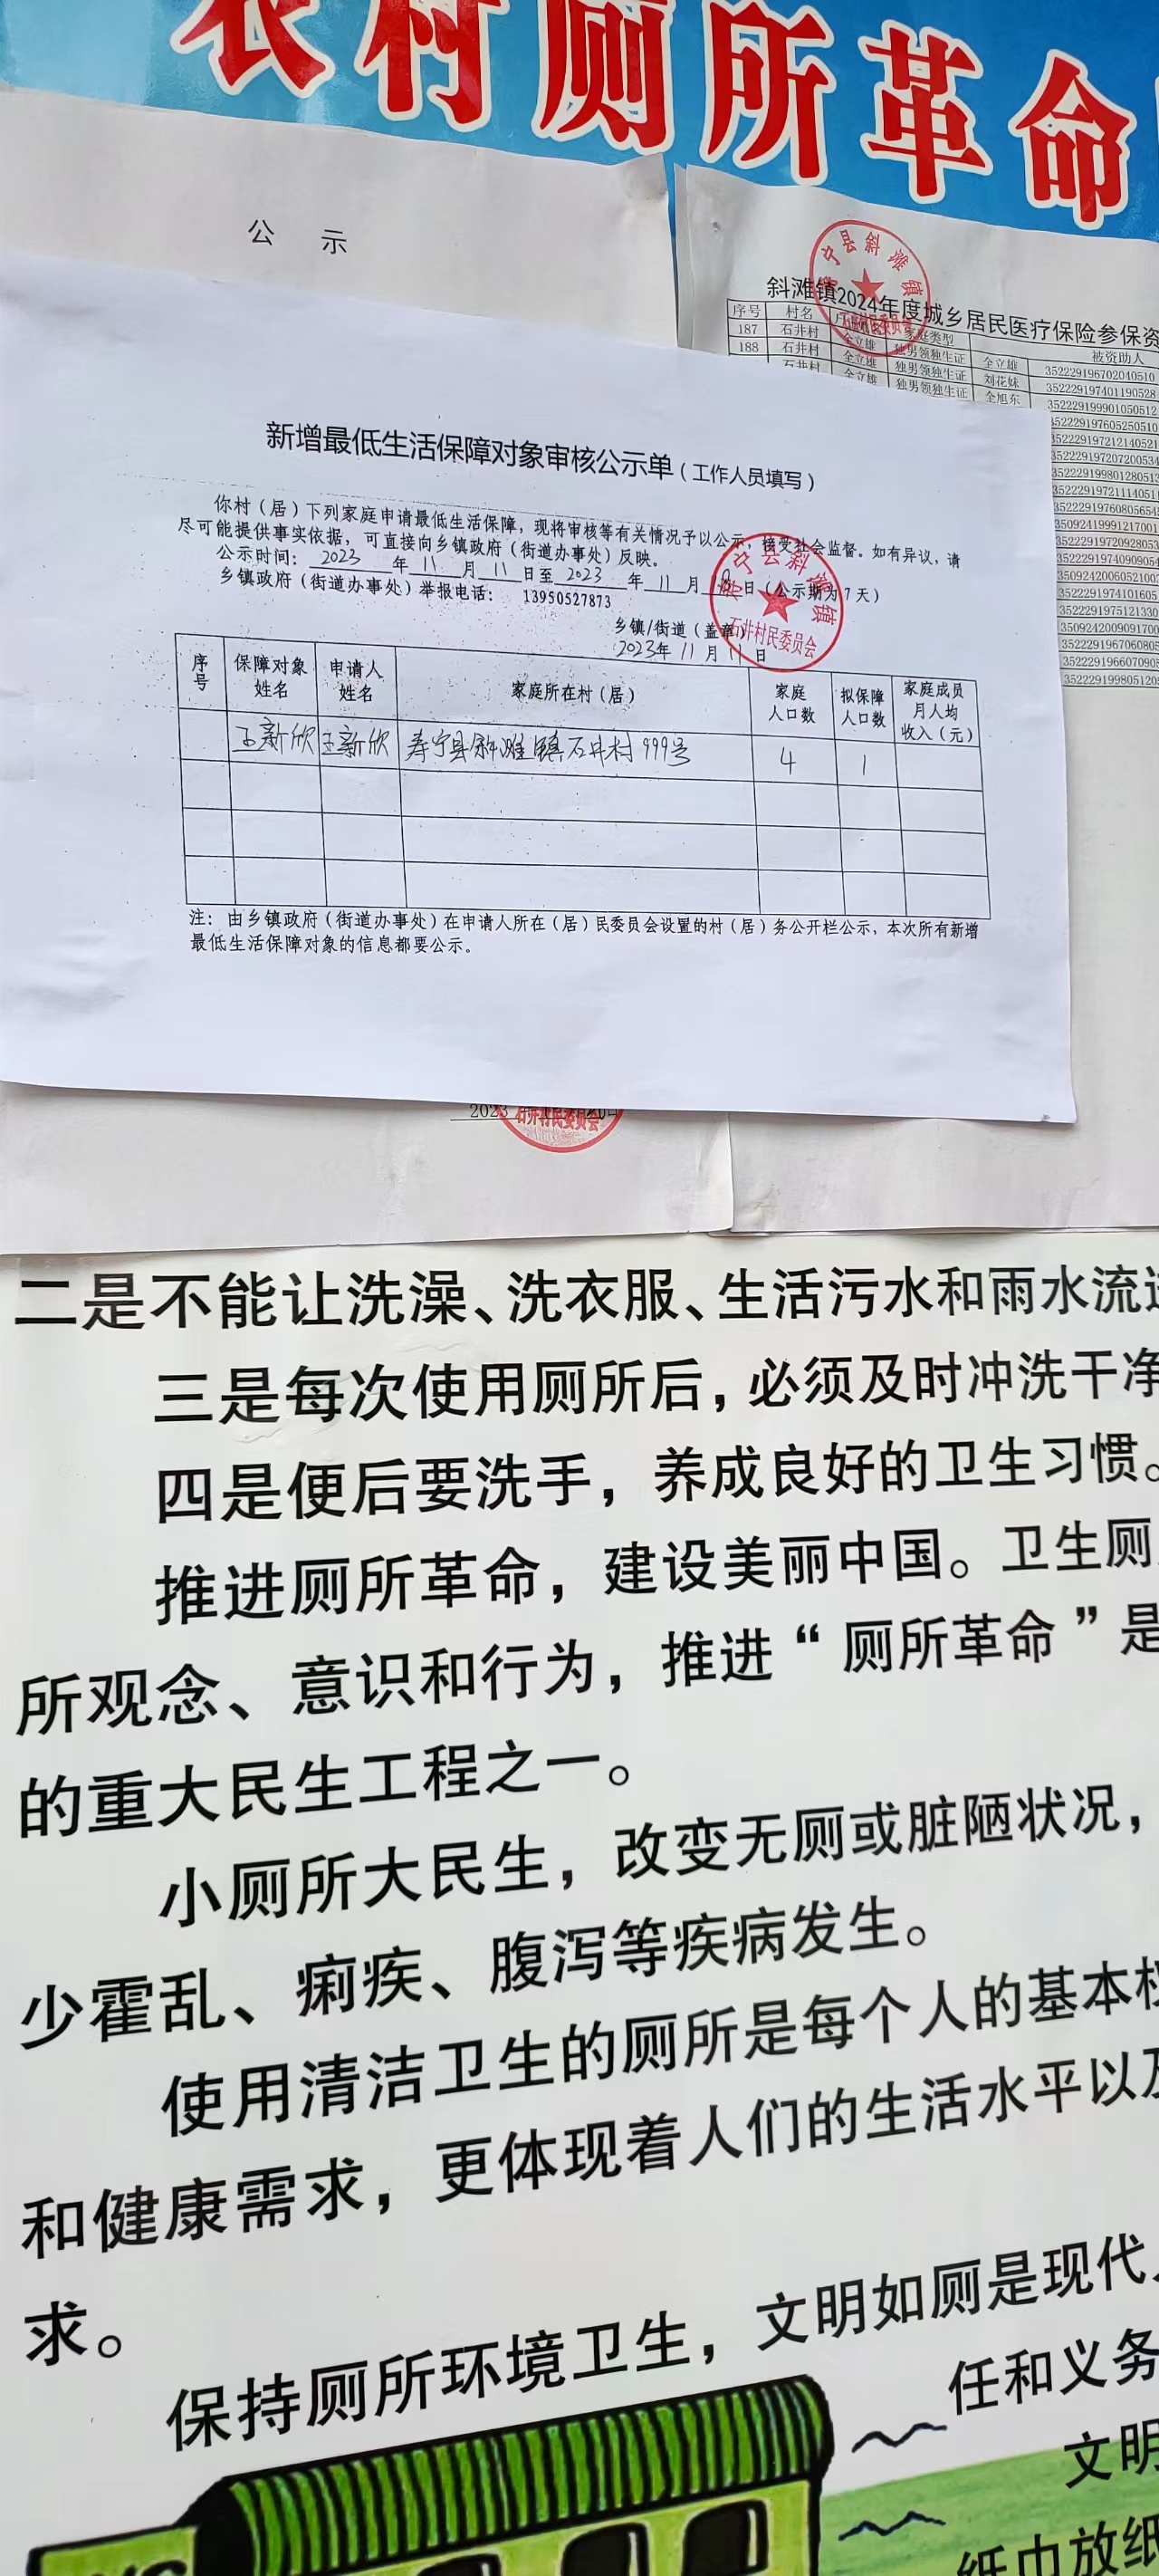 农村厕所革命
公 示
斜滩镇2024年度城乡居民医疗保险参保资
序号 村名 庭类型 被资助人
187 石井村 全立雄 独男领独生证 全立雄 352229196702040510
188 石井村 全立雄 独男领独生证 刘花妹 352229197401190528
石井村 全立雄 独男领独生证 全旭东 352229199901050512
352229197605250510
352229197212140521
35222919720720053
352229199801280513
35222919721114051
35222919760805654
35092419991217001
35222919720928053
35222919740909054
35092420060521002
3522291974101605
35222919751213​30
35092420090917​00
35222919670608​05
35222919660709​05
3522291998051​20
新增最低生活保障对象审核公示单（工作人员填写）
你村（居）下列家庭申请最低生活保障，现将审核等有关情况予以公示，接受社会监督。如有异议，请
尽可能提供事实依据，可直接向乡镇政府（街道办事处）反映。
公示时间：2023年11月11日至2023年11月18日（公示期为7天）
乡镇政府（街道办事处）举报电话： 13950527873
乡镇/街道（盖章）
2023年11月11日
寿宁县斜滩镇
石井村民委员会
序号 保障对象姓名 申请人姓名 家庭所在村（居） 家庭人口数 拟保障人口数 家庭成员月人均收入（元）
王新欣 王新欣 寿宁县斜滩镇石井村999号 4 1
注：由乡镇政府（街道办事处）在申请人所在（居）民委员会设置的村（居）务公开栏公示，本次所有新增
最低生活保障对象的信息都要公示。
2023年
石井村民委员会
二是不能让洗澡、洗衣服、生活污水和雨水流进
三是每次使用厕所后，必须及时冲洗干净
四是便后要洗手，养成良好的卫生习惯。
推进厕所革命，建设美丽中国。卫生厕
所观念、意识和行为，推进“厕所革命”是
的重大民生工程之一。
小厕所大民生，改变无厕或脏陋状况，
少霍乱、痢疾、腹泻等疾病发生。
使用清洁卫生的厕所是每个人的基本权
和健康需求，更体现着人们的生活水平以及
求。
保持厕所环境卫生，文明如厕是现代人
任和义务
文明
纸巾放纸